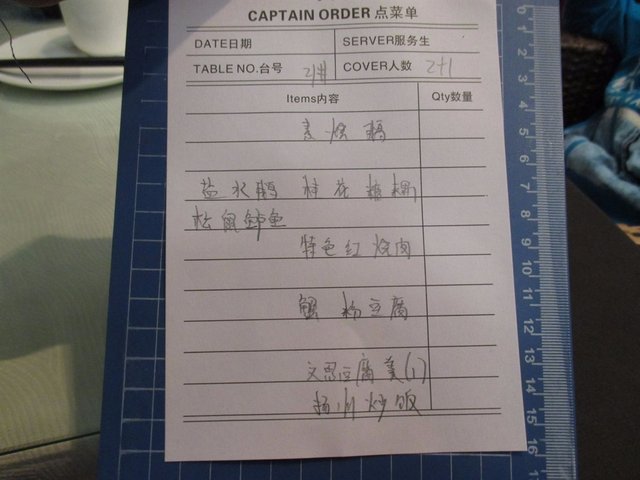 CAPTAIN ORDER 点菜单
DATE日期 SERVER服务生
TABLE NO.台号 21# COVER人数 2+1
Items内容 Qty数量
盐水鹅 桂花
松鼠
特色红烧肉
蟹粉豆腐
文思豆腐羹(1)
扬州炒饭
0
1
2
3
4
5
6
7
8
9
10
11
12
13
14
15
16